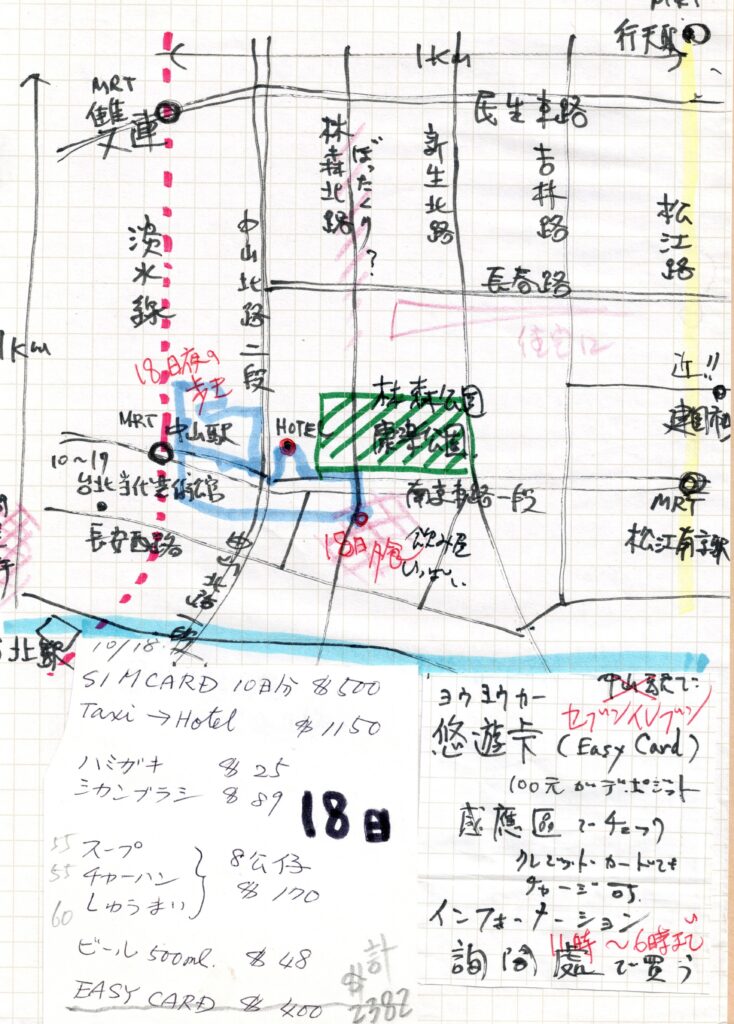 MRT
行天
1Km
MRT
雙連
民生東路
林森北路
ぼったくり?
新生北路
吉林路
松江路
淡水線
中山北路二段
長春路
1Km
18日夜の
住宅
近!!
林森公園
康楽公園
HOTEL
MRT
中山駅
建国
10〜17
台北当代芸術館
南京東路一段
MRT
松江南京駅
長安西路
18日夕食
飲み屋
いっぱい
中山北路
北駅
10/18.
SIMCARD 10日分 $500
Taxi → Hotel $1150
ハミガキ $25
ミカンブラシ $89
18日
55 スープ
55 チャーハン
60 しゅうまい
8公仔
$170
ビール 500ml. $48
EASY CARD $400
計
$2382
ヨウヨウカー
セブンイレブン
悠遊卡 (Easy Card)
100元がデポジット
感應區でチェック
クレジットカードでも
チャージ可.
インフォメーション
11時〜6時まで
詢問處で買う